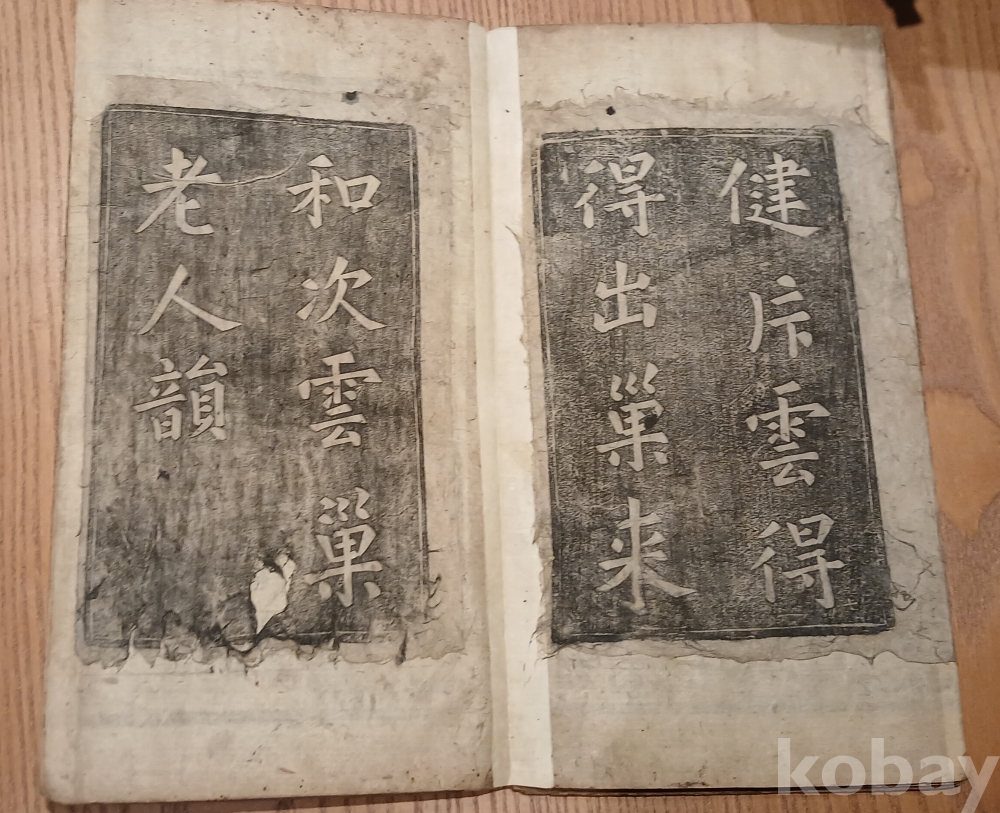 健斥雲得
得出巢来
和次雲巢
老人韻
kobay